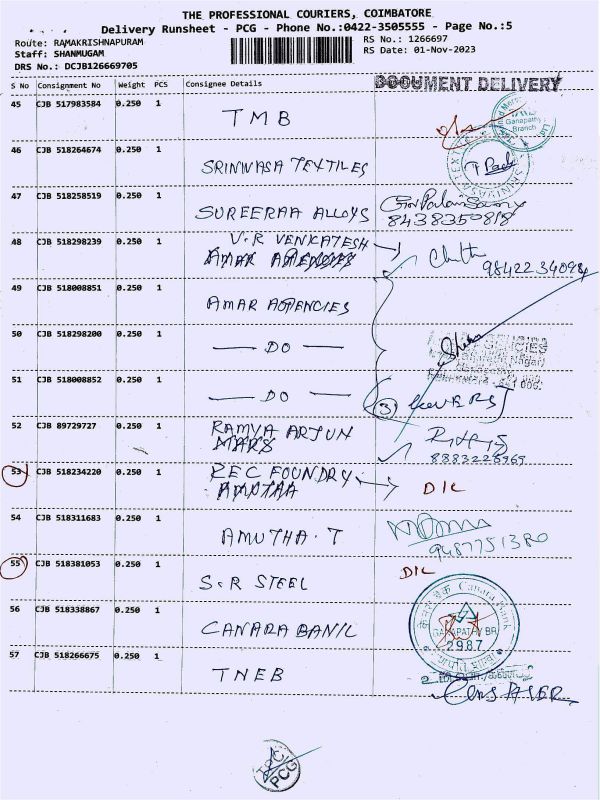 THE PROFESSIONAL COURIERS, COIMBATORE
Delivery Runsheet - PCG - Phone No.:0422-3505555 - Page No.:5
Route: RAMAKRISHNAPURAM
RS No.: 1266697
Staff: SHANMUGAM
RS Date: 01-Nov-2023
DRS No.: DCJB126669705
S No Consignment No Weight PCS Consignee Details
DOCUMENT DELIVERY
45 CJB 517983584 0.250 1 TMB
Ganapathy Branch
46 CJB 518264674 0.250 1 SRINIVASA TEXTILES
47 CJB 518258519 0.250 1 SUREERAA ALLOYS
8438350818
48 CJB 518298239 0.250 1 V.R VENKATESH
AMAR AGENCIES
9842234094
49 CJB 518008851 0.250 1 AMAR AGENCIES
50 CJB 518298200 0.250 1 — DO —
51 CJB 518008852 0.250 1 — DO — 3
52 CJB 89729727 0.250 1 RAMYA ARJUN
MARS
53 CJB 518234220 0.250 1 REC FOUNDRY D/L
AMUTHA
54 CJB 518311683 0.250 1 AMUTHA.T
9487751380
55 CJB 518381053 0.250 1 S.R STEEL D/L
56 CJB 518338867 0.250 1 CANARA BANK
Canara Bank
GANAPATHY BR
2987
57 CJB 518266675 0.250 1 TNEB
PCG